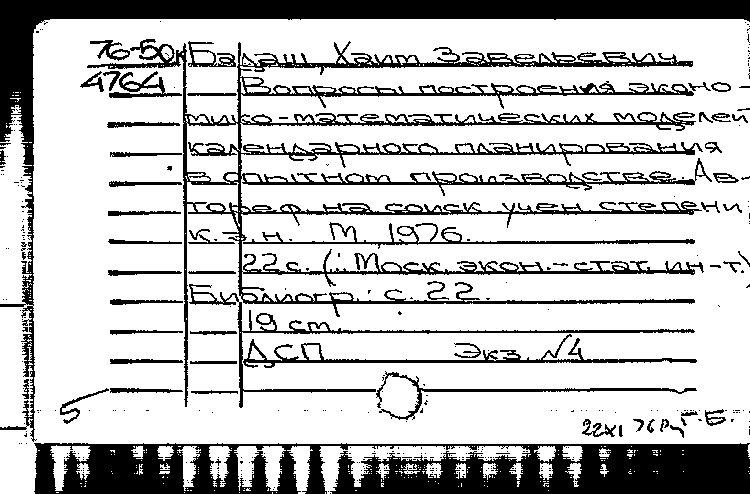 76-50к Бадаш, Хаим Завельевич
4764 Вопросы построения эконо-
мико-математических моделей
календарного планирования
в опытном производстве. Ав-
тореф. на соиск. учен. степени
к.э.н. М., 1976.
22 с. (... Моск. экон.-стат. ин-т.)
Библиогр.: с. 22.
19 см.
ДСП Экз. №4
5
22XI 76 Г.Б.